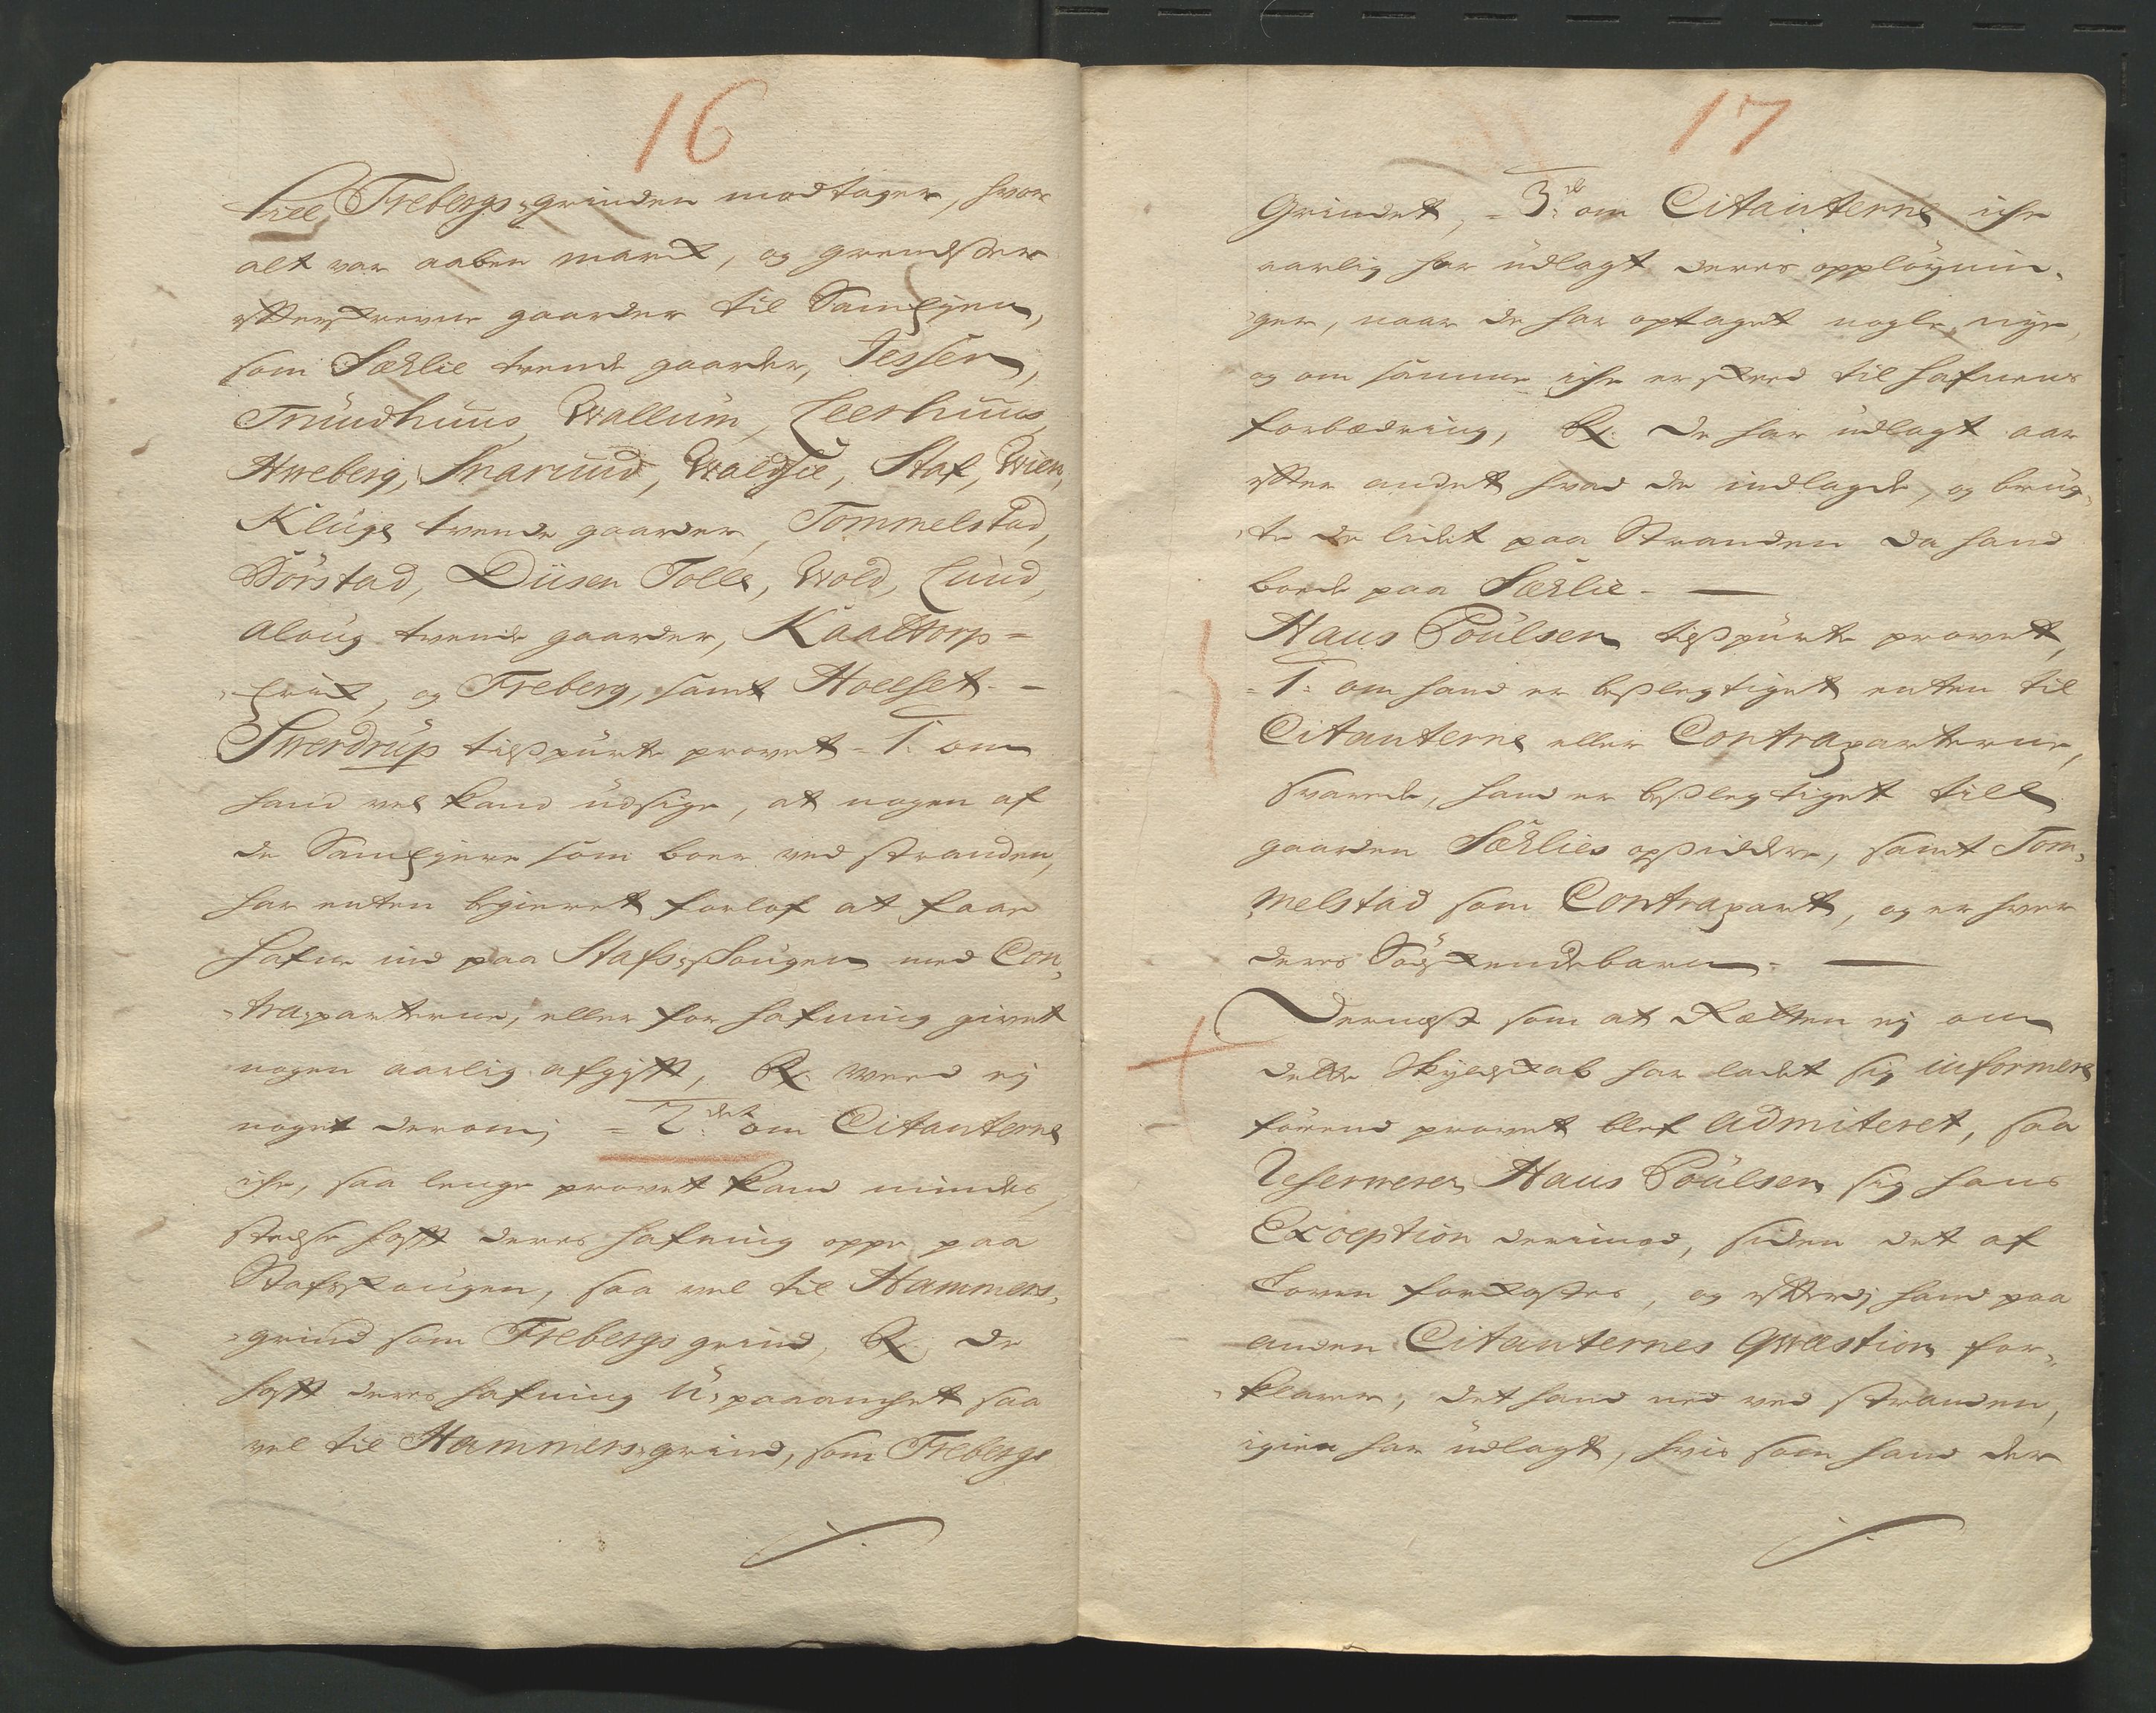 16
till Frebergs-grinden modtager, hvor
alt var aaben mark, og grendsser
efterskrevne gaarder til Samejen,
som Sælie tvende gaarder, Jesser,
Trundhuus, Wallum, Leerhuus,
Hweberg, Snarud, Waldsie, Staf, Wien,
Kluge tvende gaarder, Tommelstad,
Börstad, Diisen Tolle, Wold, Lund,
Aloug tvende gaarder, Kaaltorp-
-eriet, og Freberg, samt Hollset. -
Swerdrup tilspurte provet - 1. om
hand vel kand udsige, at nogen af
de Samejere som boer ved stranden,
har enten begieret forlof at faae
hafne ind paa Stafs-skougen med Con,
-tra,parterne, eller for hafning givet
nogen aarlig afgift, R. weed ej
noget derom; - 2det om Citanterne
iche, saa lenge provet kand mindes,
stedse haft deres hafning oppe paa
Stafsskougen, saa vel til Hammers,
-grind som Frebergs grind, R. de
haft deres hafning u,paaanchet saa
vel til Hammers-grind, som Frebergs
17
Grindet, - 3die om Citanterne iche
aarlig har udlagt deres opploynin,
-ger, naar de har optaget nogle nye,
og om samme iche er skeed til hafnens
forbædring, R. de har udlagt aar
efter andet hvad de indlagde, og brug,
-te de lidet paa Stranden da hand
boede paa Sælie. —
Hans Poulsen tilspurte provet,
- 1. om hand er besslegtiget enten til
Citanterne eller Contraparterne,
svarede, hand er besslegtiget till
gaarden Sælies opsiddere, samt Tom,
melstad som Contrapart, og er hver
deres Södskendebarn. —
Dernæst som at Rætten ej om
dette Skyldskab har ladet sig informere
förend provet blef admiteret, saa
reserverer Hans Poulsen sig hans
Exception derimod, siden det af
Loven forkastes, og efterdj hand paa
anden Citanternes Qwæstion for,
-klarer, det hand ned ved stranden,
igien har udlagt, hvis som hand der